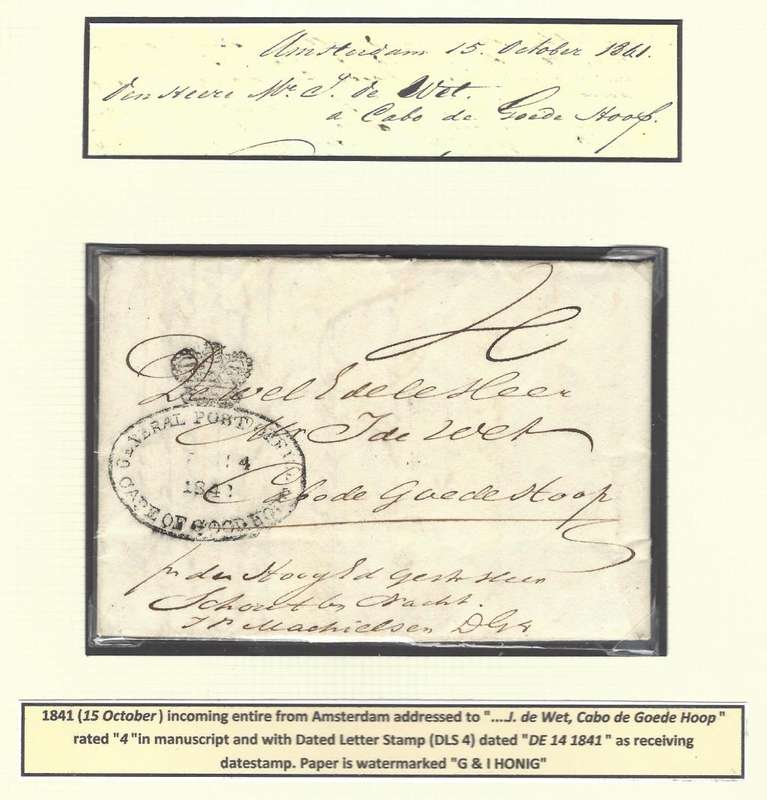 Amsterdam 15. October 1841.
den Heere Mr. J. de Wet.
a Cabo de Goede Hoop.
4
De Wel Edele Heer
Mr J de Wet
Cabo de Goede Hoop
GENERAL POST OFFICE
14
1841
CAPE OF GOOD HOPE
pr den Hoog Ed Gestr Heer
Schout bij Nacht.
Machielsen
1841 (15 October) incoming entire from Amsterdam addressed to "....J. de Wet, Cabo de Goede Hoop"
rated "4 "in manuscript and with Dated Letter Stamp (DLS 4) dated "DE 14 1841" as receiving
datestamp. Paper is watermarked "G & I HONIG"